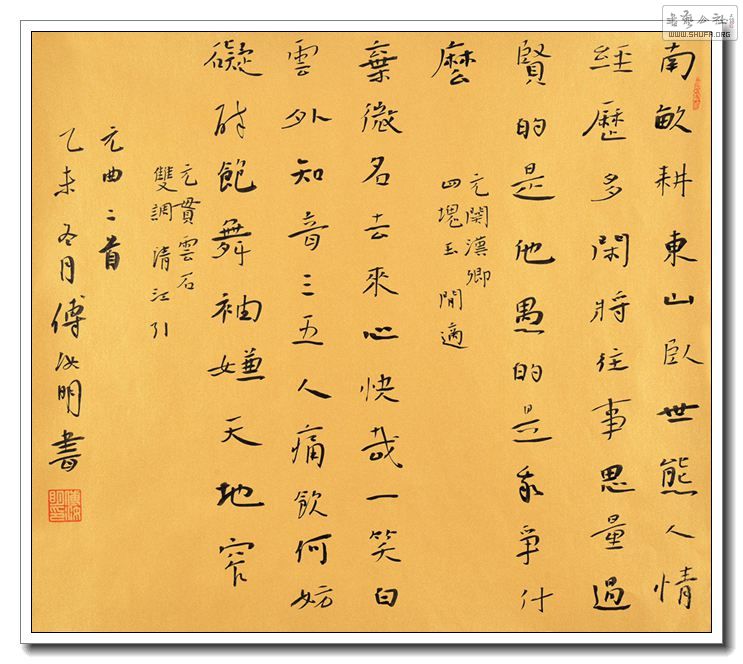 南畝耕東山臥世態人情
經歷多閑將往事思量過
賢的是他愚的是我爭什
麼
元關漢卿
四塊玉 閒適
棄微名去來心快哉一笑白
雲外知音三五人痛飲何妨
礙醉飽舞袖嫌天地窄
元貫雲石
雙調 清江引
元曲二首
乙未冬月傅汝明書
WWW.SHUFA.ORG